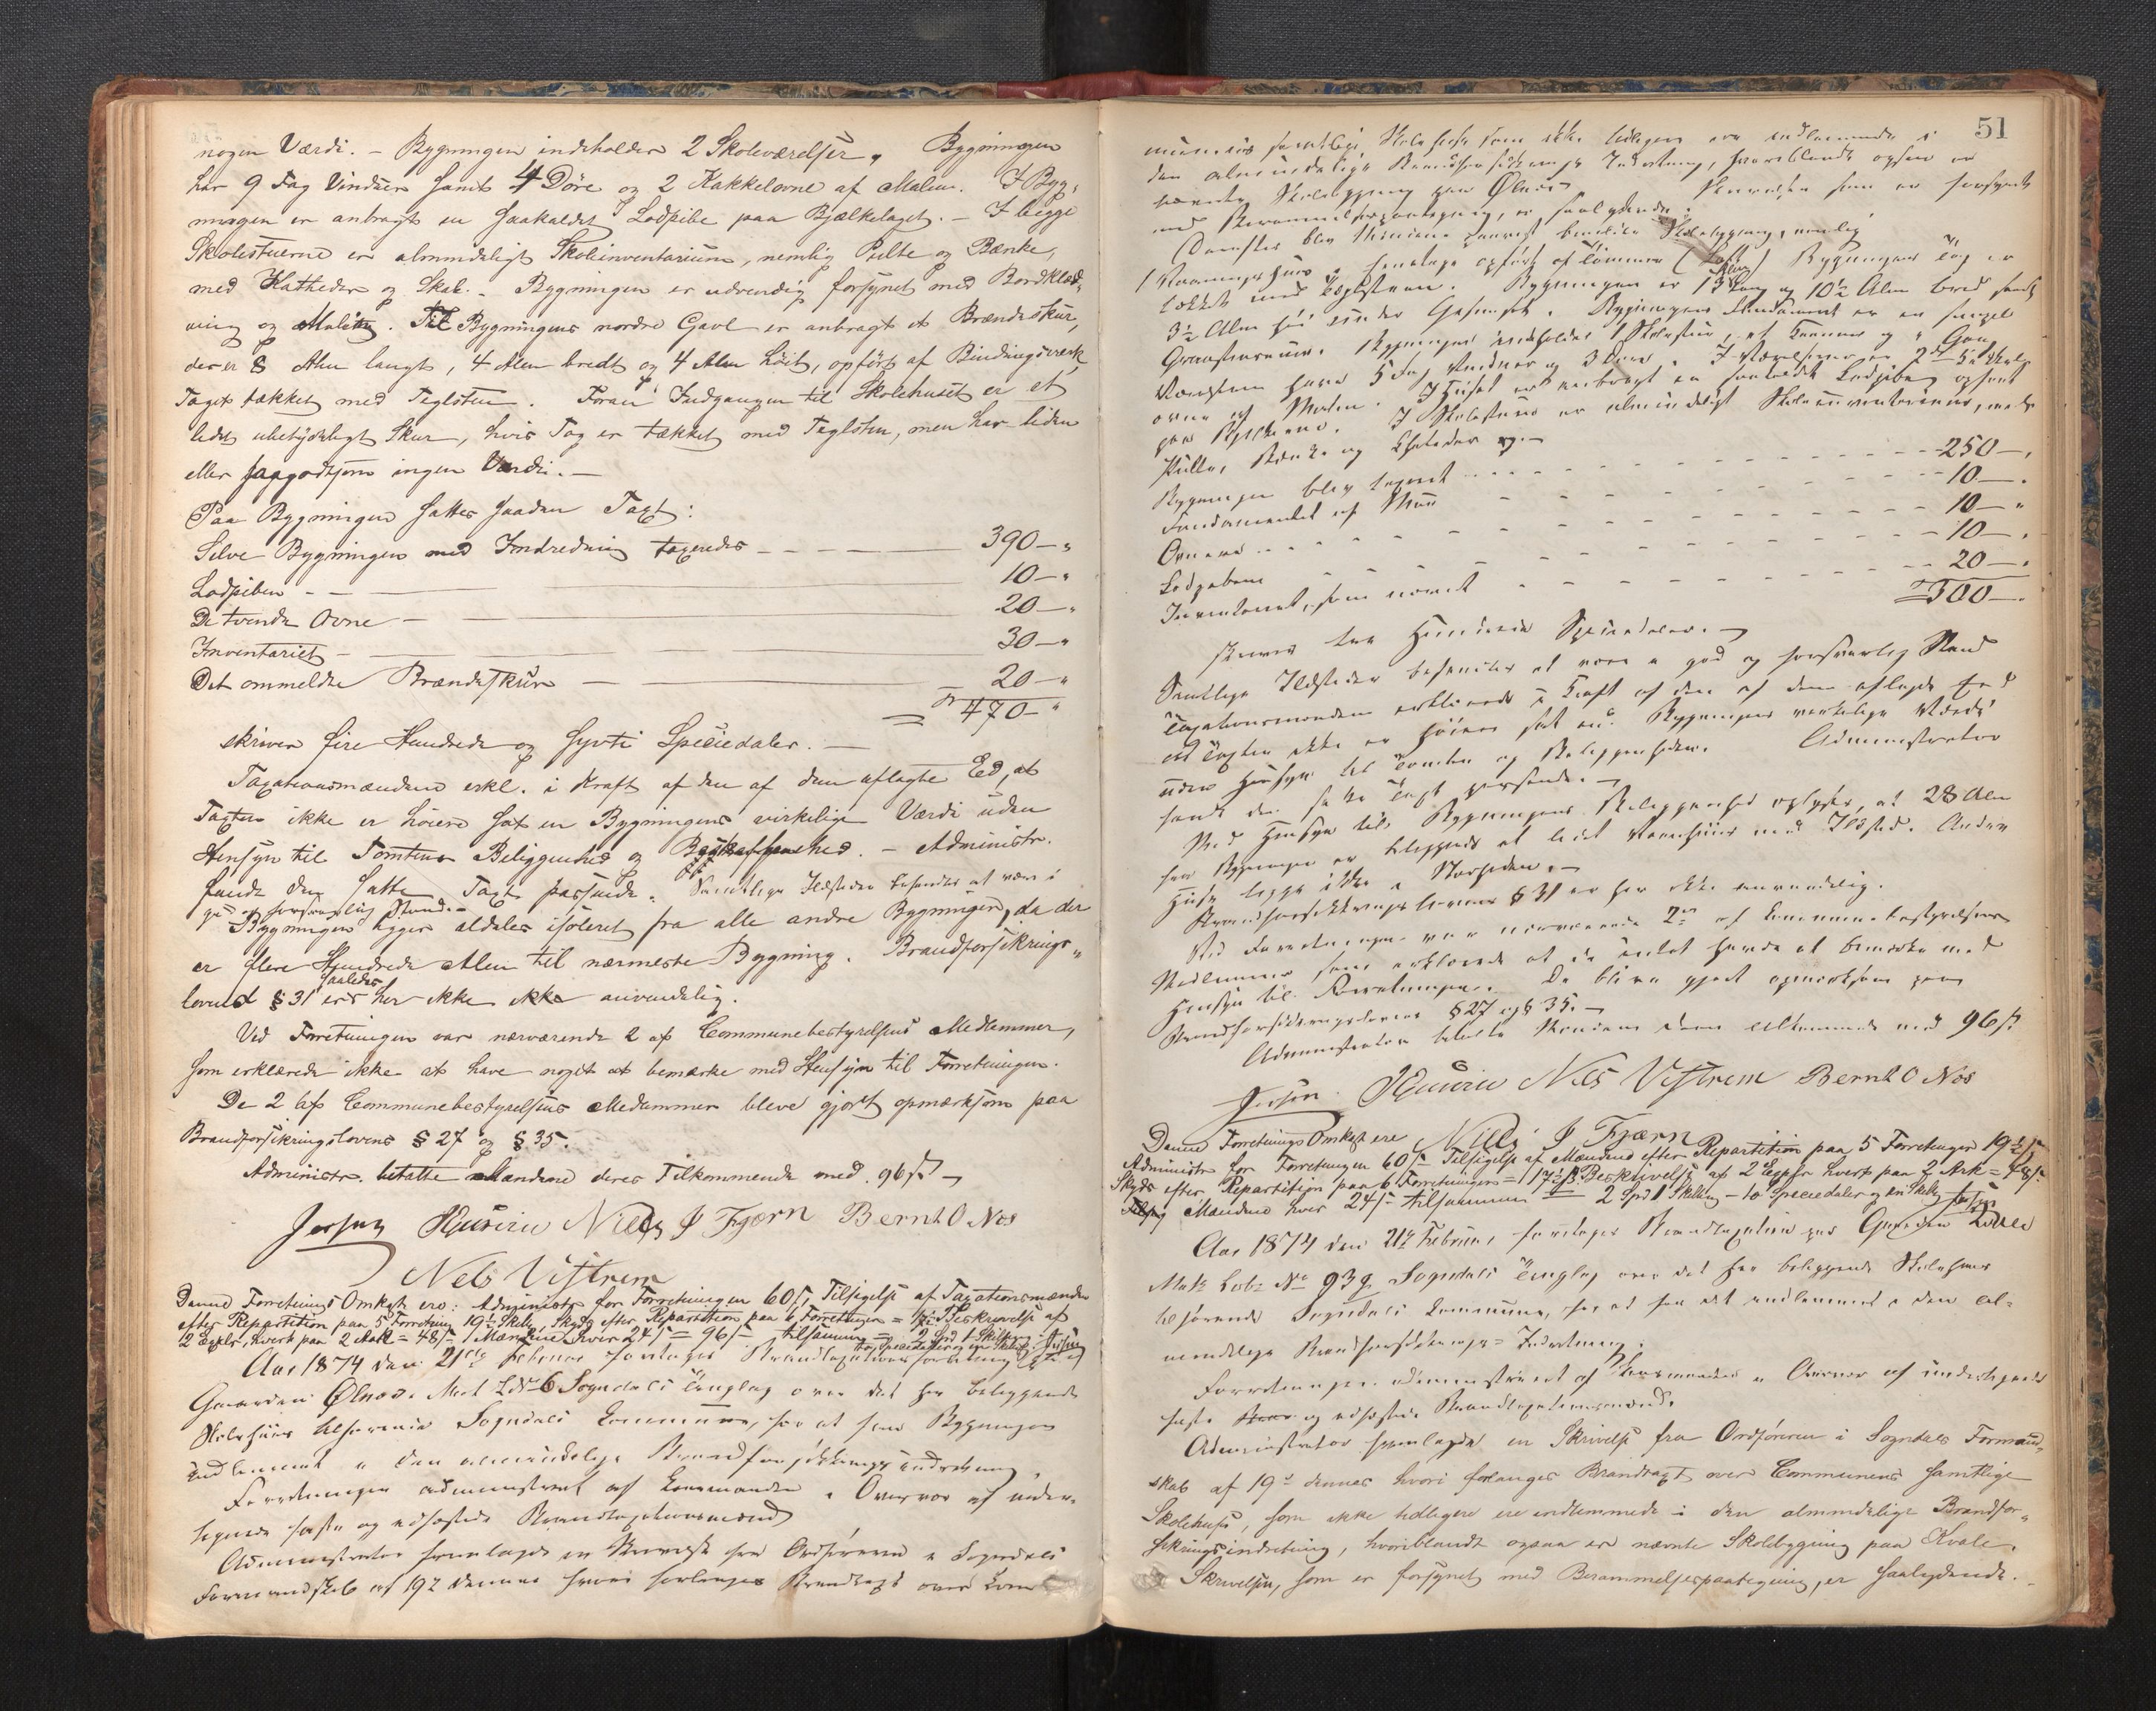 nogen Værdi. – Bygningen indeholder 2 Skoleværelser, Bygningen
har 9 Fag Vinduer samt 4 Døre og 2 Kakkelovne af Malm. I Byg-
ningen er anbragt en saakaldet Lodpibe paa Bjælkelaget. – I begge
Skolestuerne er almindeligt Skoleinventarium, nemlig Pulte og Bænke,
med Katheder og Skab. – Bygningen er udvendig forsynet med Bordklæd-
ning og Maling. Til Bygningens nordre Gavl er anbragt et Brændeskur,
der er 8 Alen langt, 4 Alen bredt og 4 Alen høit, opført af Bindingsværk,
Taget tækket med Teglsten. Foran Indgangen til Skolehuset er et
lidet ubetydeligt Skur, hvis Tag er tækket med Teglsten, men har liden
eller saagodtsom ingen Værdi. –
Paa Bygningen sattes saadan Taxt:
Selve Bygningen med Indredning taxeredes – – – 390 – "
Lodpiben – – 10 – "
De tvende Ovne – 20 – "
Inventariet – 30 – "
Det ommeldte Brændeskur – 20 – "
= 470 – "
skriver fire Hundrede og sytti Speciedaler. –
Taxationsmændene erkl. i Kraft af den af dem aflagte Ed, at
Taxten ikke er høiere sat en Bygningens virkelige Værdi uden
Hensyn til Tomtens Beliggenhed og Beskaffenhed. – Administr.
fandt den satte Taxt passende. Samtlige Ildsteder befandtes at være i
god og forsvarlig Stand. –
Bygningen ligger aldeles isoleret fra alle andre Bygninger, da der
er flere Hundrede Alen til nærmeste Bygning. Brandforsikrings-
lovens § 31 er saaledes her ikke anvendelig.
Ved Forretningen var nærværende 2 af Communebestyrelsens Medlemmer,
som erklærede ikke at have noget at bemærke med Hensyn til Forretningen.
De 2 af Communebestyrelsens Medlemmer bleve gjort opmærksom paa
Brandforsikringslovens § 27 og § 35.
Administr. betalte Mændene deres Tilkommende med 96 ß –
Jersin Husein Niels J Fjærn Bernt O Nos
Nels Vestrem
Denne Forretnings Omkost. ere: Administr. for Forretningen 60 ß, Tilsigelse af Taxationsmænden
efter Repartition paa 5 Forretning 19½ Skill, Skyds efter Repartition paa 6 Forretninger = 17½ ß Beskrivelse af
2 Expl., hvert paa 2 Ark = 48 ß Mændene hver 24 ß = 96 ß tilsammen = 2 Spd 1 Skilling
Aar 1874 den 21de Februar foretoges Brandtaxationsforretning paa
Gaarden Ølnæs Mat. Lbr 6 Sogndals Tinglag over det her beliggende
Skolehuus tilhørende Sogndals Kommune, for at faa Bygningen
indlemmet i den almindelige Brandforsikringsindretning.
Forretningen administreret af Lensmanden i Overvær af under-
tegnede faste og edfæstede Brandtaxationsmænd
Administrator fremlagde en Skrivelse fra Ordføreren i Sogndals
Formandskab af 19de dennes hvori forlanges Brandtaxt over Kom-
51
munens samtlige Skolehuse som ikke tidligere ere indlemmede i
den almindelige Brandforsikrings Indretning, hvoriblandt ogsaa er
nævnte Skolebygning paa Ølnæs. Skrivelsen som er forsynet
med Berammelsespaategning, er saalydende:
Derefter blev Huset paavist beskreven Skolebygning, nemlig
1 Vaaningshuus, 1 Etage opført af Tømmer (Laft) Bygningens Tag er
tækket med Teglsteen. Bygningen er 13 Alen lang og 10½ Alen bred samt
3½ Alen høi under Gesimset. Bygningens Fundament er en
Graasteensmuur. Bygningen indeholder 1 Skolestue, et Kammer og 1 Gang
Værelserne have 5 Fag Vinduer og 3 Døre. I Værelserne er 2de Kakkel-
ovne af Malm. I Huset er anbragt en saakaldt Lodpibe opsat
paa Bjælkerne. I Skolestuen er almindeligt Skoleinventarium, nemlig
Pulte, Bænke og Katheder
Bygningen blev taxeret – – – 250 –
Fundamentet af Muur – – – 10 –
Ovnene – – – 10 – "
Lodpiben – – – 10 –
Inventariet, som nævnt – – – 20 –
= 300 –
skriver tre Hundrede Speciedaler. –
Samtlige Ildsteder befandtes at være i god og forsvarlig Stand
Taxationsmændene erklærede i Kraft af den af dem aflagte Ed
at Taxten ikke er høiere sat end Bygningens verkelige Værdi
uden Hensyn til Tomten og Beliggenheden. Administrator
fandt den satte Taxt passende. –
Med Hensyn til Bygningens Beliggenhed oplystes, at 28 Alen
fra Bygningen er beliggende et lidet Vaanhuus med Ildsted. Andre
Huse ligge ikke i Nærheden. –
Brandforsikringslovens § 31 er her ikke anvendelig.
Ved Forretningen var nærværende 2de af Kommunebestyrelsens
Medlemmer som erklærede at de intet havde at bemærke med
Hensyn til Forretningen. De bleve gjort opmærksom paa
Brandforsikringslovens § 27 og § 35. –
Administrator betalte Mændene deres Tilkommende med 96 ß
Jersin Husein Nels Vestrem Bernt O Nos
Niels J Fjærn
Denne Forretnings Omkost. ere
Administr for Forretningen 60 ß Tilsigelse af Mændene efter Repartition paa 5 Forretninger 19½ ß
Skyds efter Repartition paa 6 Forretninger = 17½ ß Beskrivelse af 2 Exple hvert paa 2 Ark = 48 ß
Mændene hver 24 ß tilsammen = 2 Spd 1 Skilling – to Speciedaler og en Skilling Jersin
Aar 1874 den 21de Februar foretoges Brandtaxation paa Gaarden Kvale
Matr. Lobe No 93 Sogndals Tinglag over det her beliggende Skolehuus
tilhørende Sogndals Kommune, for at faa det indlemmet i den al-
mindelige Brandforsikrings-Indretning.
Forretningen administreret af Lensmanden i Overvær af undertegnede
faste og edfæstede Brandtaxationsmænd.
Administrator fremlagde en Skrivelse fra Ordføreren i Sogndals Formand-
skab af 19de dennes hvori forlanges Brandtaxt over Communens samtlige
Skolehuse, som ikke tidligere ere indlemmede i den almindelige Brandfor-
sikringsindretning, hvoriblandt ogsaa er nævnte Skolebygning paa Kvale.
Skrivelsen, som er forsynet med Berammelsespaategning, er saalydende. –